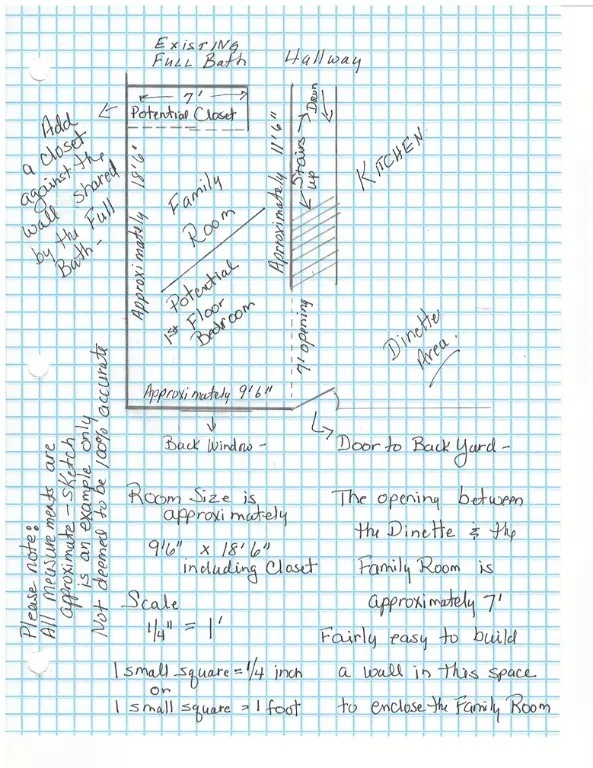 Existing
Full Bath
Hallway
7'
Potential Closet
Down
Stairs
up
Add
a closet
against the
wall shared
by the Full
Bath-
Approximately 18'6"
Family
Room
Aprroximately 11'6"
KITCHEN
Potential
1st Floor
Bedroom
7' opening
Dinette
Area.
Approximately 9'6"
Back Window-
Door to Back Yard-
Please note:
All measurements are
approximate - sketch
is an example only
Not deemed to be 100% accurate
Room Size is
approximately
9'6" x 18'6"
including Closet
Scale
1/4" = 1'
1 small square = 1/4 inch
or
1 small square = 1 foot
The opening between
the Dinette & the
Family Room is
approximately 7'
Fairly easy to build
a wall in this space
to enclose the Family Room